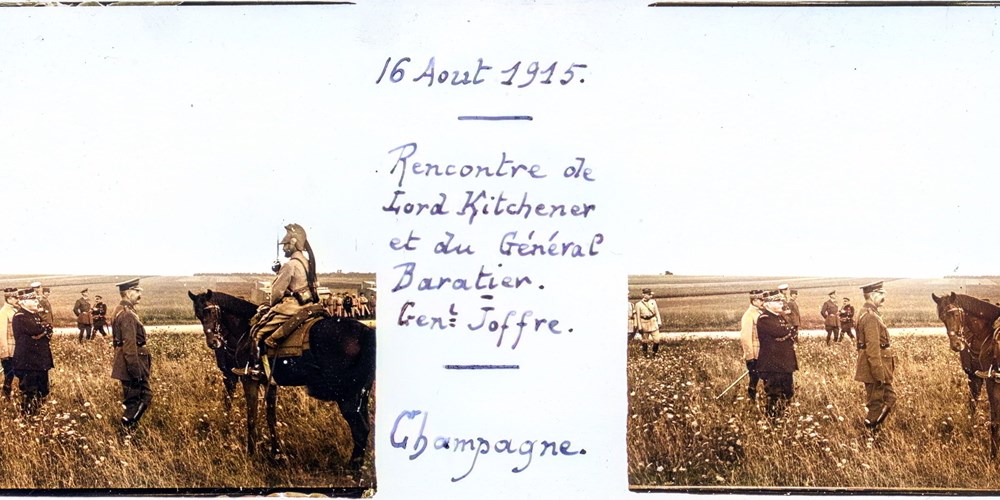 16 Aout 1915.
Rencontre de
Lord Kitchener
et du Général
Baratier.
Gent Joffre.
Champagne.